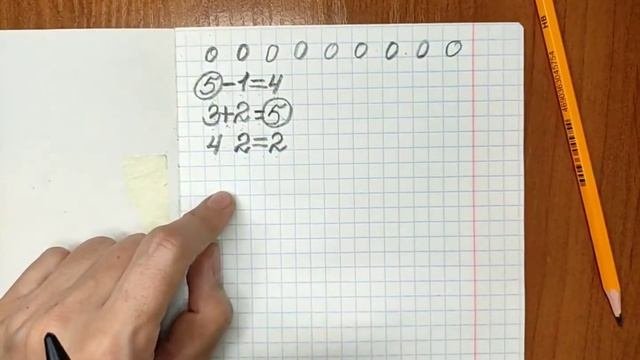 0 0 0 0 0 0 0 0 0
5-1=4
3+2=5
4 2=2
HB